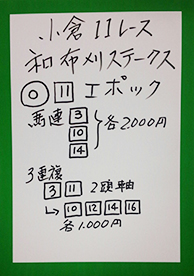 小倉11レース
和布刈ステークス
◎ 11 エポック
馬連 3
10
14
各2.000円
3連複
3 11 2頭軸
→ 10 12 14 16
各1.000円